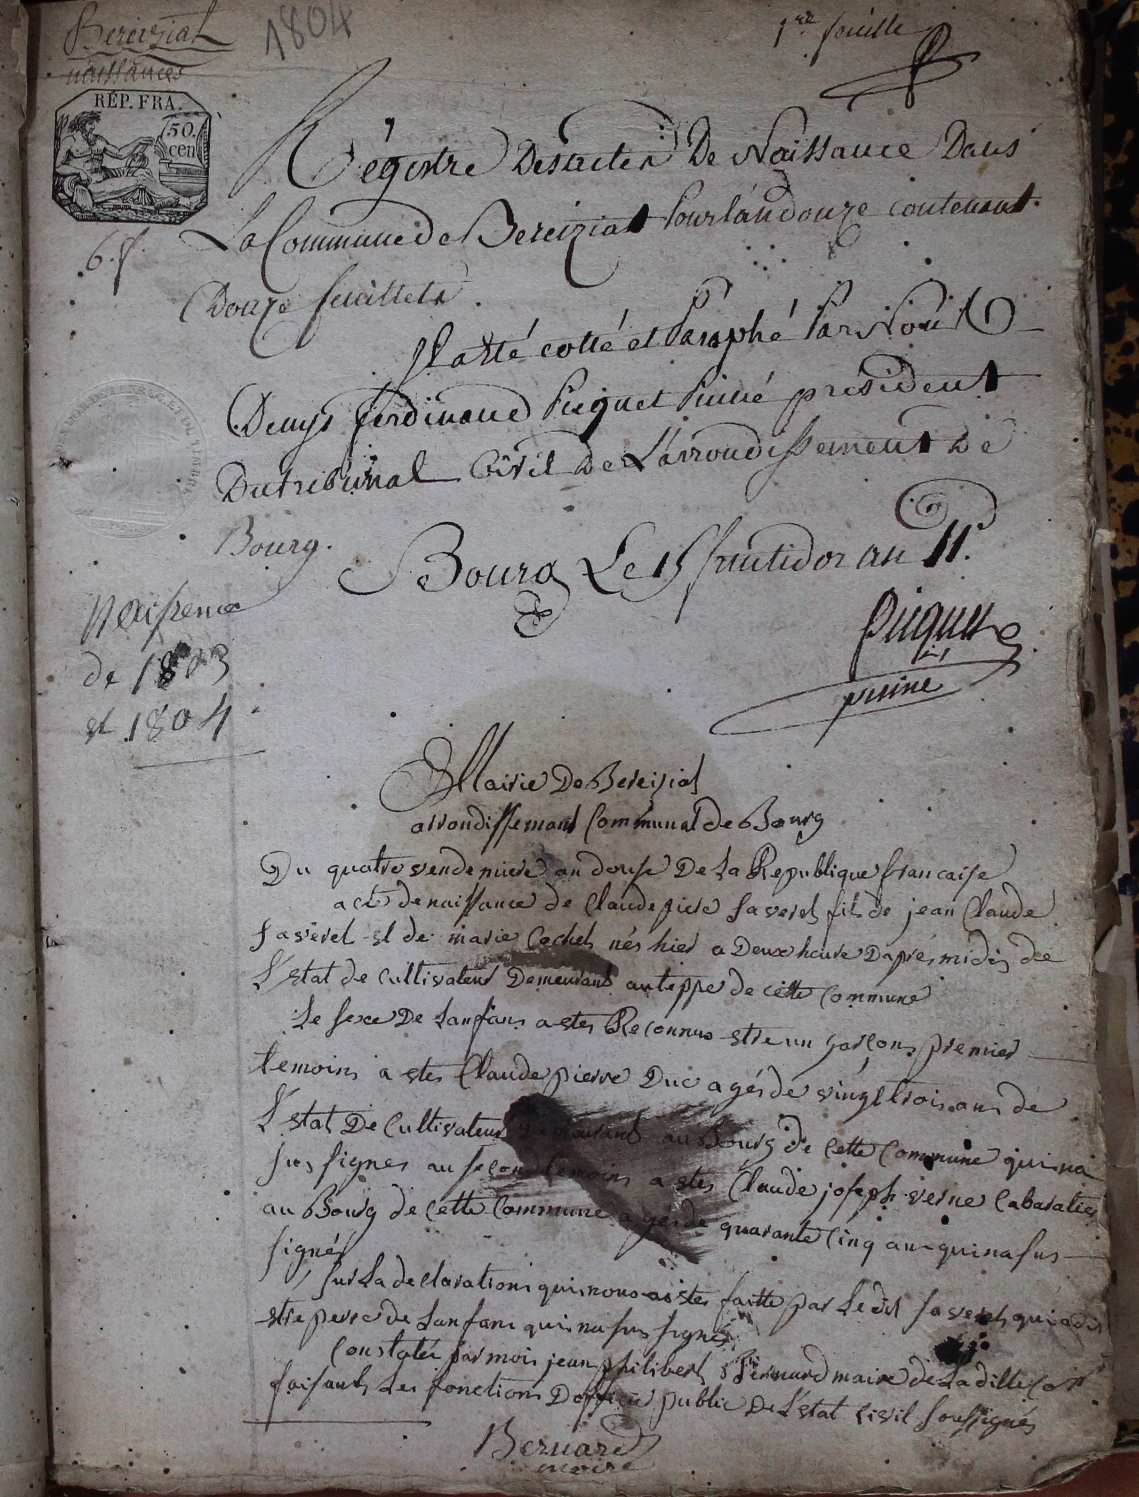 Bereiziat
naissances
1804
1re feuille
REP. FRA.
50.
cen
Régistre Des actes De Naissance Dans
La Commune de Bereiziat Pour l'an douze contenant
Douze feuillets.
Il a été cotté et Paraphé Par Nous
Denys ferdinand Picquet Puiné president
Du tribunal Civil De L'arrondissement De
Bourg.
Bourg Le 15 fructidor an 11.
Picquet
puiné
Naissance
de 1803
et 1804
Mairie De Bereiziat
arrondissement Communal de Bourg
Du quatre vendemiere an douse De La Republique francaise
acte de naissance de Claude piere faveret fils de jean Claude
faveret et de marie Cochet nés hier a Deux heure Daprés midis de
L'etat de cultivateur Demeurant au teppe de cette Commune
Le sexe De Lanfans a etes Reconnus estre un garçons premier
temoins a etes Claude pierre Duc agés de vingt trois ans de
L'etat De Cultivateur Demeurant au Bourg de cette Commune qui na
sus signer au second temoins a etes Claude joseph verne Cabaratier
au Bourg de cette Commune agés de quarante cinq ans qui na sus
signér
sur La declarations qui nous a etes faitte par Le dit faveret qui a dit
etre perre de Lanfans qui na sus signér
Constatér par mois jean philibert Bernard maire de La ditte Com
faisants Les fonctions Dofficié public De L'etat Civil soussignés
Bernard
maire